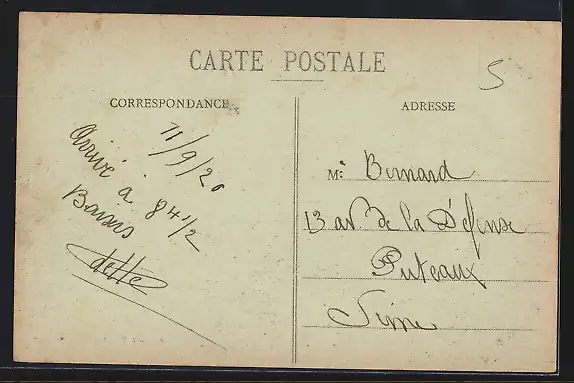 CARTE POSTALE
5
CORRESPONDANCE
ADRESSE
11/9/20
Arrivé à 8 h 1/2
Baisers
dette
Mr Bernard
13 av. de la Défense
Puteaux
Seine